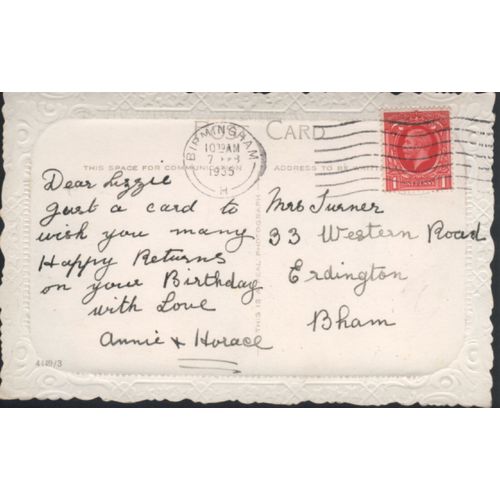 POST CARD
BIRMINGHAM
10 AM
7
1935
H
THIS SPACE FOR COMMUNICATION
ADDRESS TO BE
Dear Lizzie
Just a card to
wish you many
Happy Returns
on your Birthday
with Love
Annie & Horace
THIS IS A REAL PHOTOGRAPH
Mrs Turner
33 Western Road
Erdington
Bham
4149/3